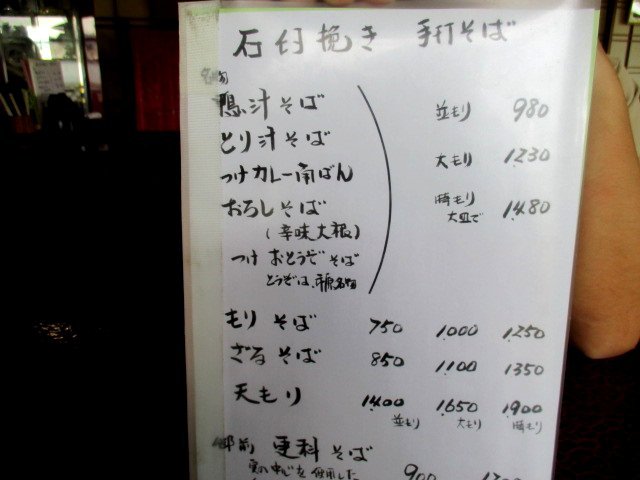 石臼挽き 手打そば
名前
鴨汁そば 並もり 980
とり汁そば 大もり 1230
つけカレー南ばん
おろしそば 特もり 大皿で 1480
(辛味大根)
つけ おとうぞ そば
とうぞは、
もりそば 750 1000 1250
ざるそば 850 1100 1350
天もり 1400 1650 1900
並もり 大もり 特もり
更科そば 900
実の中心を使用した